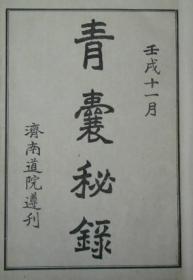 壬戌十一月
青囊秘錄
濟南道院遵刊